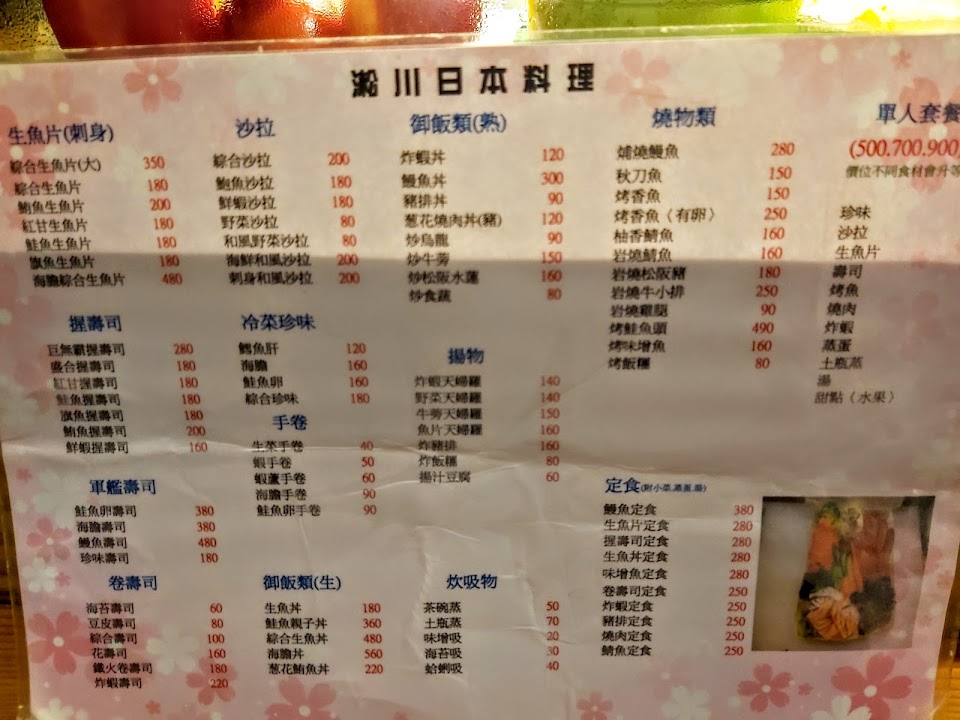 淞川日本料理
生魚片(刺身)
綜合生魚片(大) 350
綜合生魚片 180
鮪魚生魚片 200
紅甘生魚片 180
鮭魚生魚片 180
旗魚生魚片 180
海膽綜合生魚片 480
沙拉
綜合沙拉 200
鮑魚沙拉 180
鮮蝦沙拉 180
野菜沙拉 80
和風野菜沙拉 80
海鮮和風沙拉 200
刺身和風沙拉 200
御飯類(熟)
炸蝦丼 120
鰻魚丼 300
豬排丼 90
蔥花燒肉丼(豬) 120
炒烏龍 90
炒牛蒡 150
炒松阪水蓮 160
炒食蔬 80
燒物類
蒲燒鰻魚 280
秋刀魚 150
烤香魚 150
烤香魚〈有卵〉 250
柚香鯖魚 160
岩燒鯖魚 160
岩燒松阪豬 180
岩燒牛小排 250
岩燒雞腿 90
烤鮭魚頭 490
烤味增魚 160
烤飯糰 80
單人套餐
(500.700.900)
價位不同食材會升等
珍味
沙拉
生魚片
壽司
烤魚
燒肉
炸蝦
蒸蛋
土瓶蒸
湯
甜點〈水果〉
握壽司
豆無霸握壽司 280
盛合握壽司 180
紅甘握壽司 180
鮭魚握壽司 180
旗魚握壽司 180
鮪魚握壽司 200
鮮蝦握壽司 160
冷菜珍味
鱈魚肝 120
海膽 160
鮭魚卵 160
綜合珍味 180
手卷
生菜手卷 40
蝦手卷 50
蝦蘆手卷 60
海膽手卷 90
鮭魚卵手卷 90
揚物
炸蝦天婦羅 140
野菜天婦羅 140
牛蒡天婦羅 150
魚片天婦羅 160
炸豬排 160
炸飯糰 80
揚汁豆腐 60
軍艦壽司
鮭魚卵壽司 380
海膽壽司 380
鰻魚壽司 480
珍味壽司 180
卷壽司
海苔壽司 60
豆皮壽司 80
綜合壽司 100
花壽司 160
鐵火卷壽司 180
炸蝦壽司 220
御飯類(生)
生魚丼 180
鮭魚親子丼 360
綜合生魚丼 480
海膽丼 560
蔥花鮪魚丼 220
炊吸物
茶碗蒸 50
土瓶蒸 70
味增吸 20
海苔吸 30
蛤蜊吸 40
定食(附小菜.蒸蛋.湯)
鰻魚定食 380
生魚片定食 280
握壽司定食 280
生魚丼定食 280
味增魚定食 280
卷壽司定食 250
炸蝦定食 250
豬排定食 250
燒肉定食 250
鯖魚定食 250